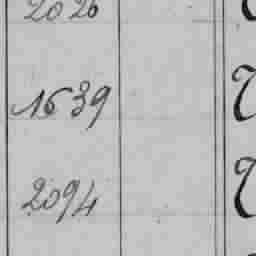 2026
1639
2094